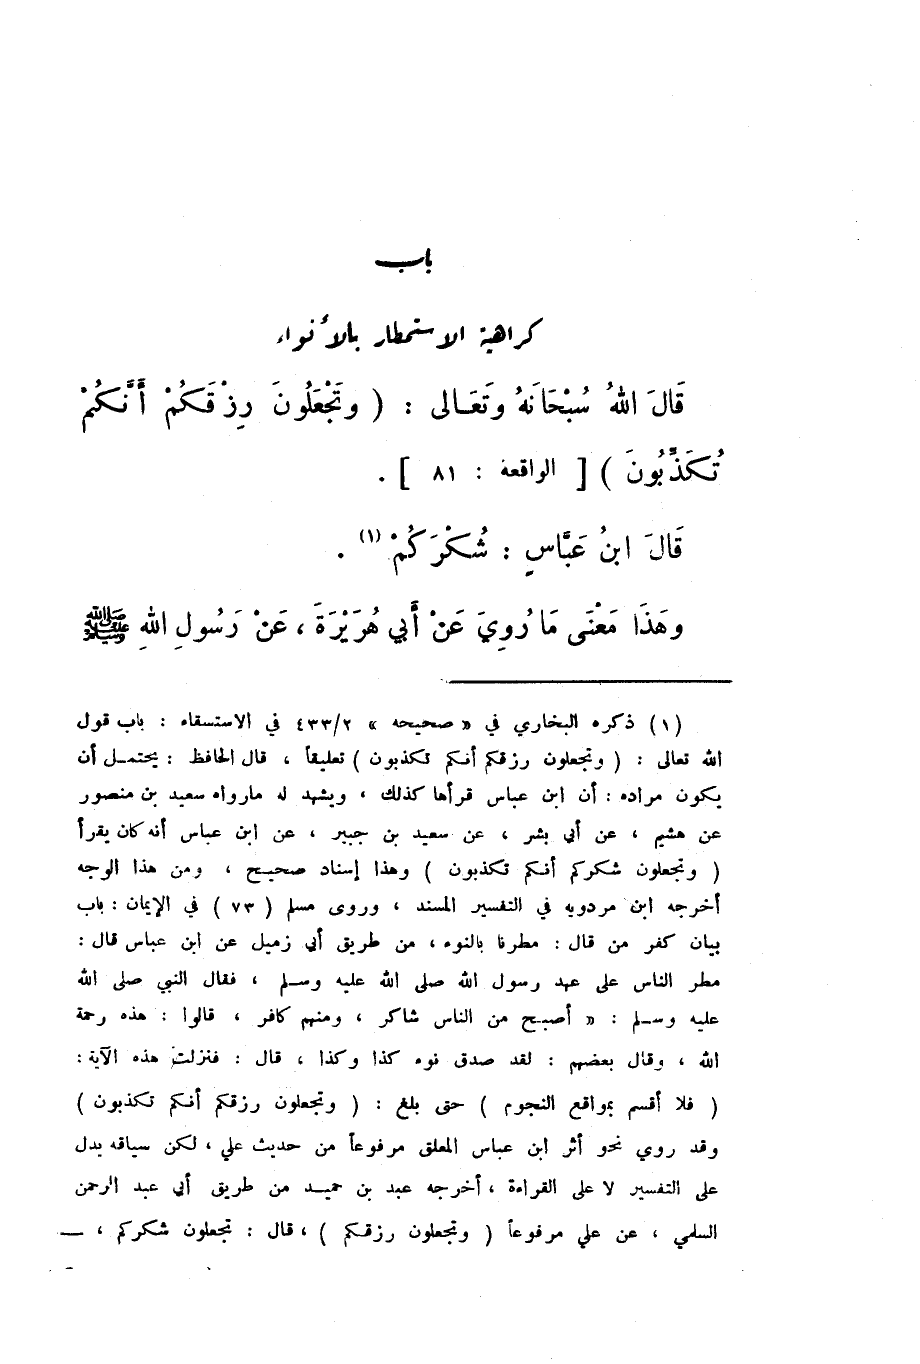 باب
كراهية الاستمطار بالأنواء
قَالَ اللهُ سُبْحَانَهُ وتَعَالى : ( وتَجْعَلُونَ رِزْقَكُمْ أَنَّكُمْ
تُكَذِّبُونَ ) [ الواقعة : ٨١ ] .
قَالَ ابنُ عَبَّاسٍ : شُكْرَكُمْ (١) .
وهَذَا مَعْنَى مَا رُوِيَ عَنْ أَبي هُرَيْرَةَ ، عَنْ رَسُولِ اللهِ ﷺ
(١) ذكره البخاري في « صحيحه » ٤٣٣/٢ في الاستسقاء : باب قول
الله تعالى : ( وتجعلون رزقكم أنكم تكذبون ) تعليقاً ، قال الحافظ : يحتمل أن
يكون مراده : أن ابن عباس قرأها كذلك ، ويشهد له مارواه سعيد بن منصور
عن هشيم ، عن أبي بشر ، عن سعيد بن جبير ، عن ابن عباس أنه كان يقرأ
( وتجعلون شكركم أنكم تكذبون ) وهذا إسناد صحيح ، ومن هذا الوجه
أخرجه ابن مردويه في التفسير المسند ، وروى مسلم ( ٧٣ ) في الإيمان : باب
بيان كفر من قال : مطرنا بالنوء ، من طريق أبي زميل عن ابن عباس قال :
مطر الناس على عهد رسول الله صلى الله عليه وسلم ، فقال النبي صلى الله
عليه وسلم : « أصبح من الناس شاكر ، ومنهم كافر ، قالوا : هذه رحمة
الله ، وقال بعضهم : لقد صدق نوء كذا وكذا ، قال : فنزلت هذه الآية :
( فلا أقسم بمواقع النجوم ) حتى بلغ : ( وتجعلون رزقكم أنكم تكذبون )
وقد روي نحو أثر ابن عباس المعلق مرفوعاً من حديث علي ، لكن سياقه يدل
على التفسير لا على القراءة ، أخرجه عبد بن حميد من طريق أبي عبد الرحمن
السلمي ، عن علي مرفوعاً ( وتجعلون رزقكم ) ، قال : تجعلون شكركم ، ـــ